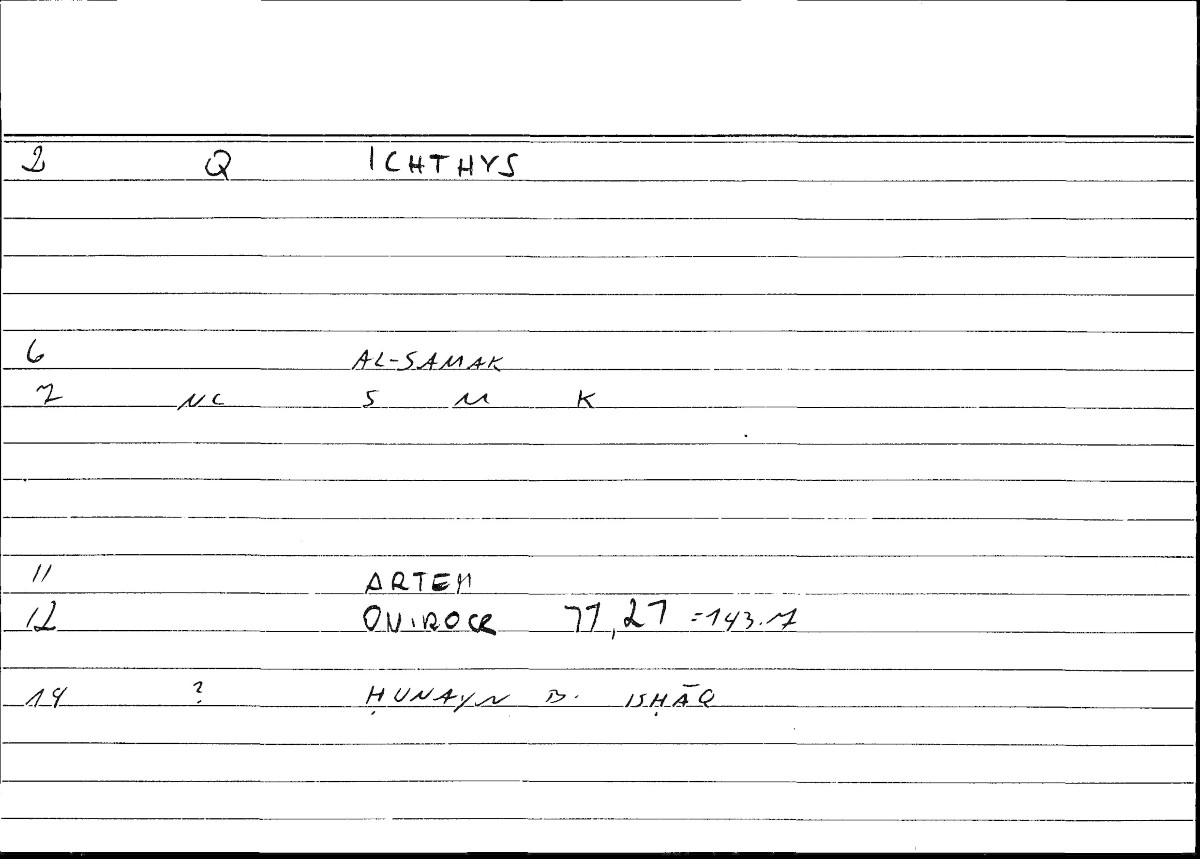 2 Q ICHTHYS
6 AL-SAMAK
7 NC S M K
11 ARTEM
12 ONIROCR 77,27 =143.7
14 ? ḤUNAYN B. ISḤĀQ